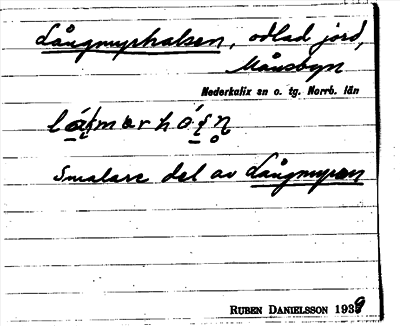 Långmyrhalsen, odlad jord,
Månsbyn
Nederkalix sn o. tg. Norrb. län
Smalare del av Långmyran
RUBEN DANIELSSON 1939